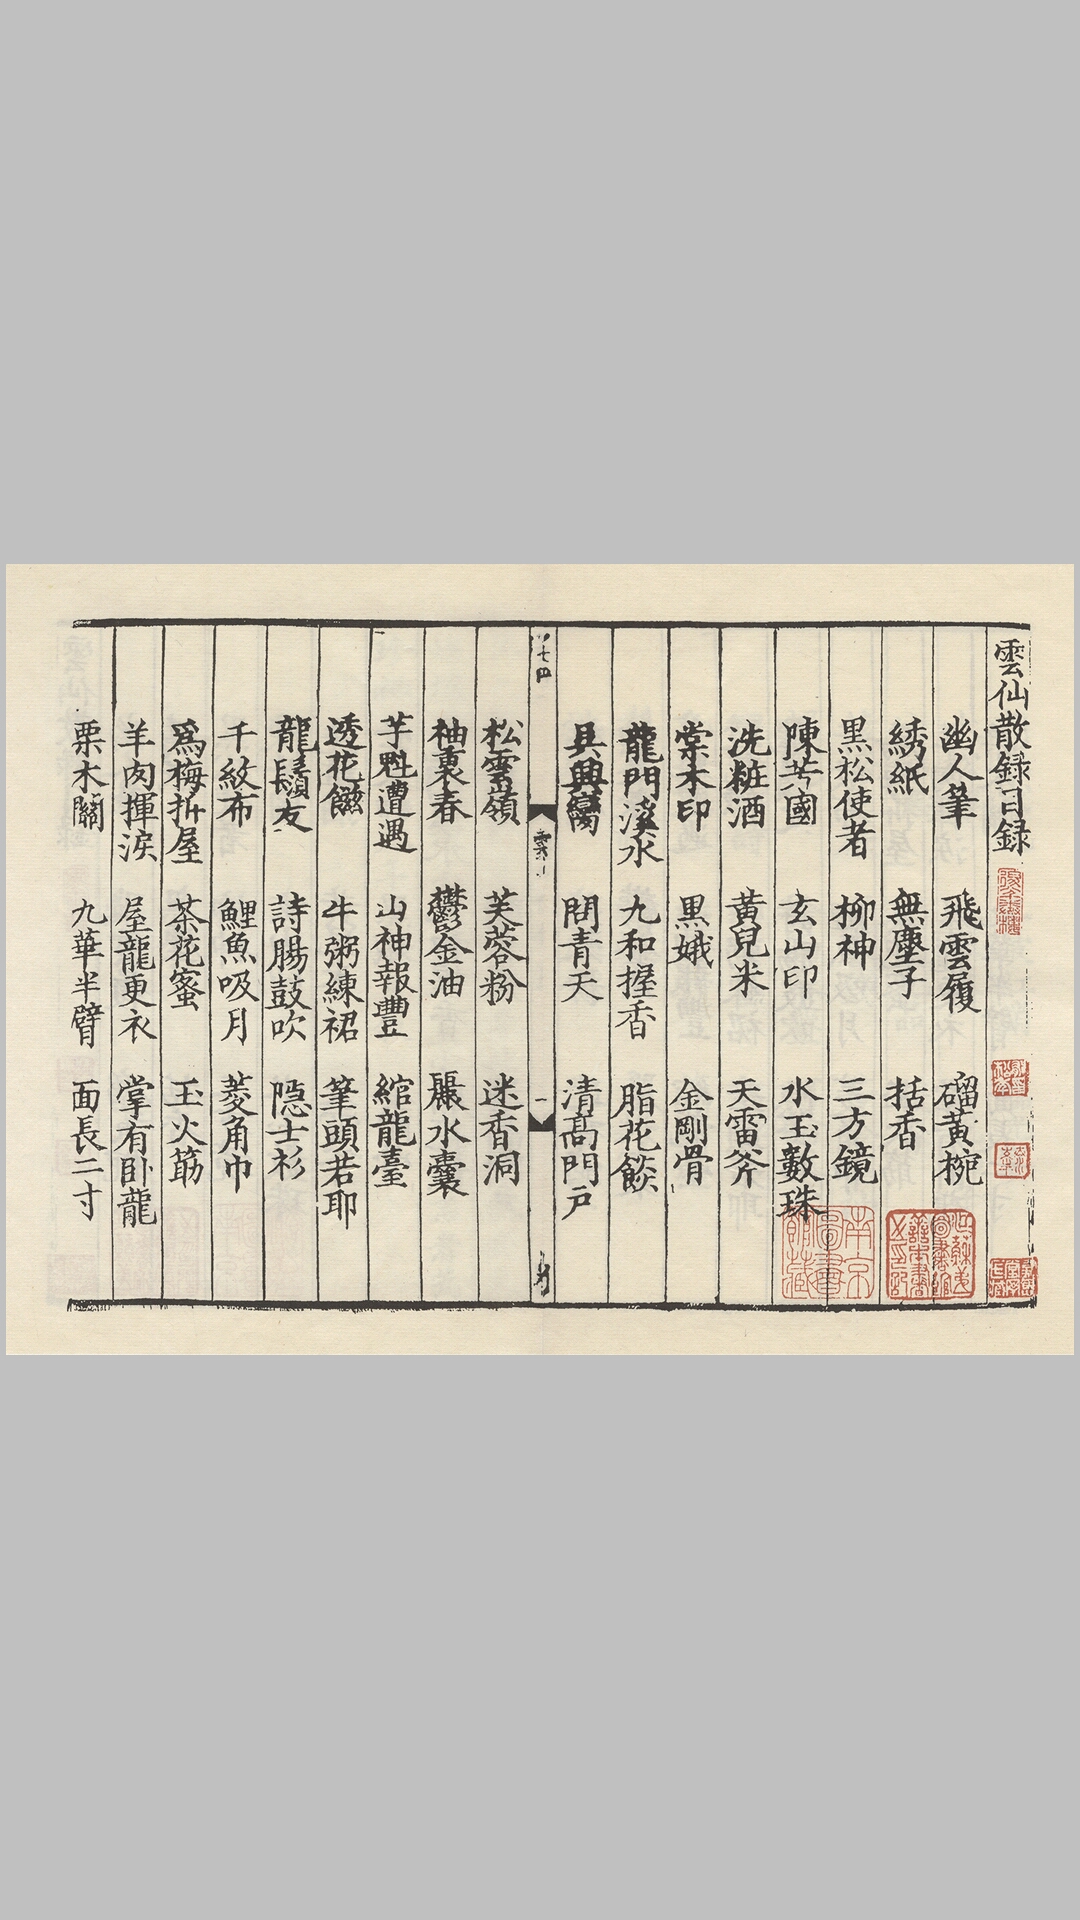 雲仙散録目録
幽人筆　飛雲履　磂黄椀
綉紙　無塵子　括香
黒松使者　柳神　三方鏡
陳芳國　玄山印　水玉數珠
洗粧酒　黄兒米　天雷斧
棠木印　黒娥　金剛骨
龍門溪水　九和握香　脂花餤
興臠　問青天　清髙門戸
雲
一
松雲嶺　芙蓉粉　迷香洞
袖裏春　鬱金油　䴡水囊
芋魁遭遇　山神報豐　綰龍臺
透花䭔　牛粥練裙　筆頭若耶
龍鬚友　詩腸鼓吹　隠士衫
千紋布　鯉魚吸月　菱角巾
爲梅折屋　茶花蜜　玉火筯
羊肉揮淚　屋龍更衣　掌有卧龍
栗木關　九華半臂　面長二寸
南京圖書館藏